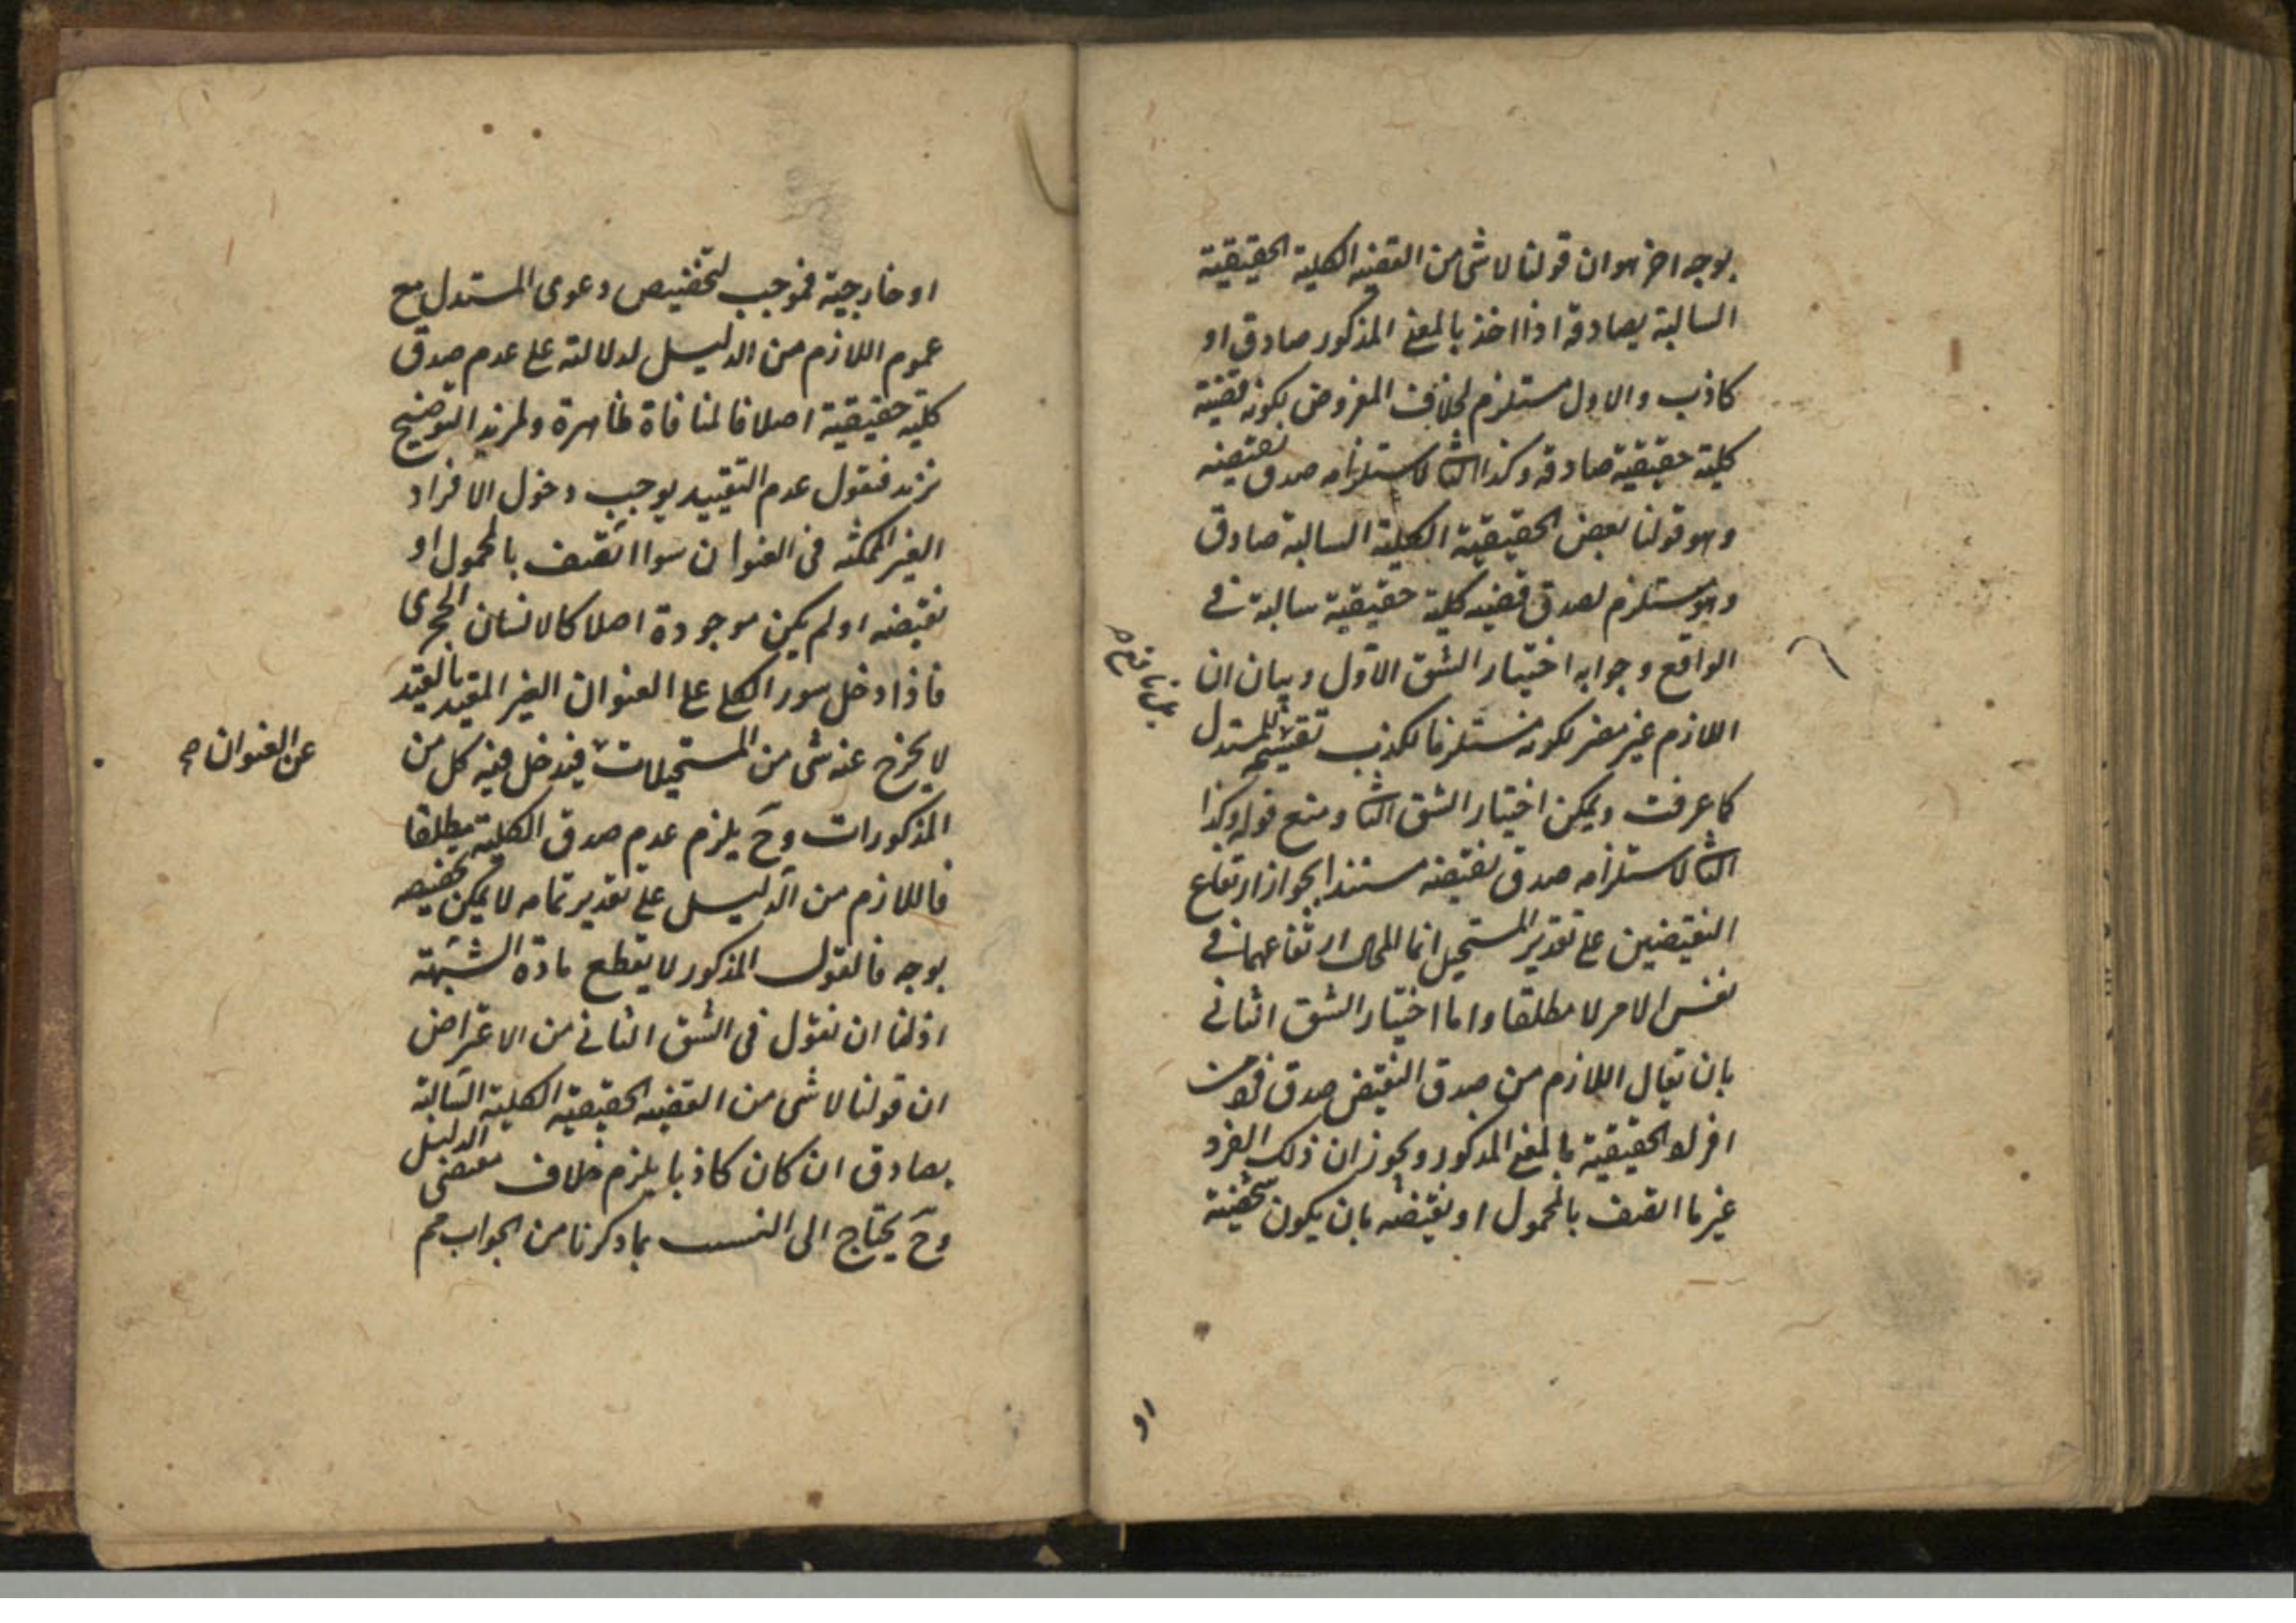 بوجه اخر هو ان قولنا لا شى من القضيه الكلية الحقيقية
السالبة بصادقة اذا اخذ بالمعنى المذكور صادق او
كاذب والاول مستلزم لخلاف المفروض بكونه قضية
كلية حقيقية صادقه وكذا الثا لاستلزامه صدق نقيضه
وهو قولنا بعض الحقيقية الكلية السالبة صادق
وهو مستلزم لصدق قضيه كلية حقيقية سالبة فى
الواقع وجوابه اختيار الشق الاول وبيان ان
اللازم غير مضر لكونه مستلزما لكذب نقيض المستدل
كما عرفت ويمكن اختيار الشق الثا ومنع قوله وكذا
الثا لاستلزامه صدق نقيضه مستندا بجواز ارتفاع
النقيضين على تقدير المستحيل انما المحال ارتفاعهما فى
نفس الامر لا مطلقا واما اختيار الشق الثانى
بان يقال اللازم من صدق النقيض صدق فرد من
افراد الحقيقية بالمعنى المذكور ويجوز ان ذلك الفرد
غير ما اتصف بالمحمول او نقيضه بان يكون شخصية
او
او خارجية فموجب لتخصيص دعوى المستدل مع
عموم اللازم من الدليل لدلالته على عدم صدق
كلية حقيقية اصلا فالمنافاة ظاهرة ولمزيد التوضيح
نزيد فنقول عدم التقييد يوجب دخول الافراد
الغير الممكنه فى العنوان سواا تصف بالمحمول او
نقيضه او لم يكن موجودة اصلا كالانسان الحجرى
فاذا دخل سور الكل على العنوان الغير المقيد بالقيد
لا يخرج عنه شى من المستحيلات فيدخل فيه كل من
عن العنوان صح
المذكورات وح يلزم عدم صدق الكلية مطلقا
فاللازم من الدليل على تقدير تمامه لا يمكن تخصيصه
بوجه فالقول المذكور لا يقطع مادة الشبهة
اذ لنا ان نقول فى الشق الثانى من الاعتراض
ان قولنا لا شى من القضيه الحقيقية الكلية السالبة
بصادق ان كان كاذبا يلزم خلاف مقتضى الدليل
وح يحتاج الى بما ذكرنا من الجواب